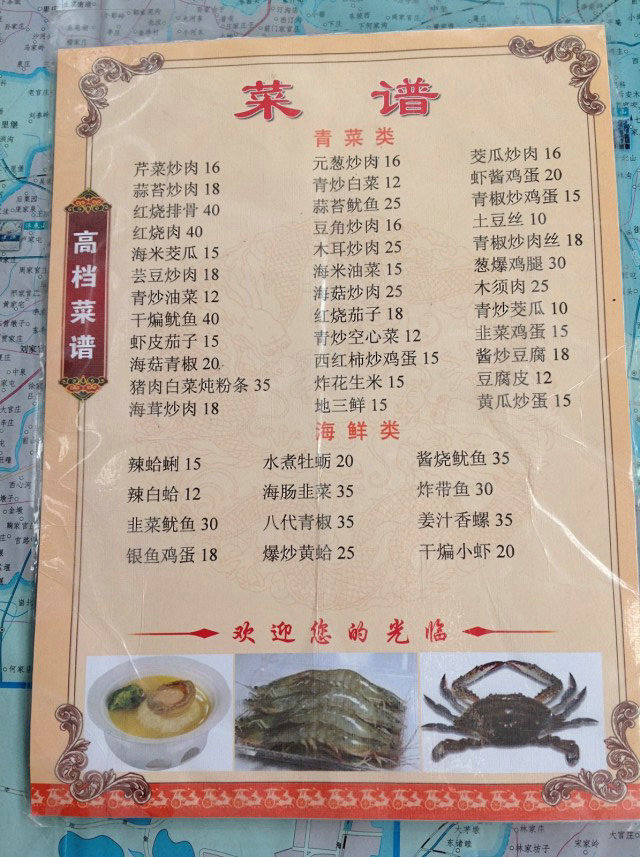 菜 谱
高档菜谱
青菜类
芹菜炒肉 16
蒜苔炒肉 18
红烧排骨 40
红烧肉 40
海米茭瓜 15
芸豆炒肉 18
青炒油菜 12
干煸鱿鱼 40
虾皮茄子 15
海菇青椒 20
猪肉白菜炖粉条 35
海茸炒肉 18
元葱炒肉 16
青炒白菜 12
蒜苔鱿鱼 25
豆角炒肉 16
木耳炒肉 25
海米油菜 15
海菇炒肉 25
红烧茄子 18
青炒空心菜 12
西红柿炒鸡蛋 15
炸花生米 15
地三鲜 15
茭瓜炒肉 16
虾酱鸡蛋 20
青椒炒鸡蛋 15
土豆丝 10
青椒炒肉丝 18
葱爆鸡腿 30
木须肉 25
青炒茭瓜 10
韭菜鸡蛋 15
酱炒豆腐 18
豆腐皮 12
黄瓜炒蛋 15
海鲜类
辣蛤蜊 15
辣白蛤 12
韭菜鱿鱼 30
银鱼鸡蛋 18
水煮牡蛎 20
海肠韭菜 35
八代青椒 35
爆炒黄蛤 25
酱烧鱿鱼 35
炸带鱼 30
姜汁香螺 35
干煸小虾 20
欢迎您的光临